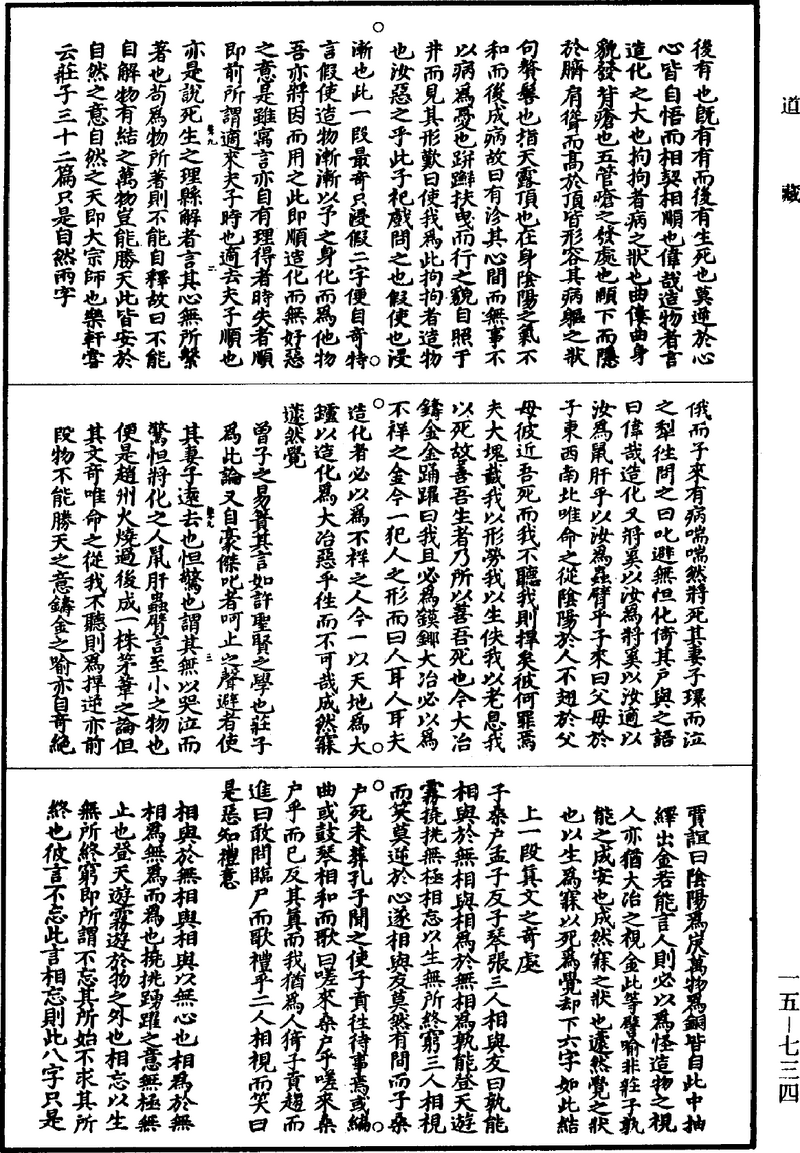 道藏
後有也既有有而後有生死也莫逆於心
心皆自悟而相契相順也偉哉造物者言
造化之大也拘拘者病之狀也曲僂曲身
貌發背瘡也五管瘡之發處也頤下而隱
於臍肩聳而高於頂皆形容其病軀之狀
句贅髻也指天露頂也在身陰陽之氣不
和而後成病故曰有沴其心間而無事不
以病為憂也跰𨇤扶曳而行之貌自照于
井而見其形歎曰使我為此拘拘者造物
也汝惡之乎此子祀戲問之也假使也浸
漸也此一段最奇只浸假二字便自奇特
言假使造物漸漸以予之身化而為他物
吾亦將因而用之此即順造化而無好惡
之意是雖寓言亦自有理得者時失者順
即前所謂適來夫子時也適去夫子順也
亦是說死生之理縣解者言其心無所繫
著也苟為物所著則不能自釋故曰不能
自解物有結之萬物豈能勝天此皆安於
自然之意自然之天即大宗師也樂軒雲
云莊子三十二篇只是自然兩字
俄而子來有病喘喘然將死其妻子環而泣
之犁往問之曰叱避無怛化倚其戶與之語
曰偉哉造化又將奚以汝為將奚以汝適以
汝為鼠肝乎以汝為蟲臂乎子來曰父母於
子東西南北唯命之從陰陽於人不翅於父
母彼近吾死而我不聽我則捍矣彼何罪焉
夫大塊載我以形勞我以生佚我以老息我
以死故善吾生者乃所以善吾死也今大冶
鑄金金踊躍曰我且必為鏌鋣大冶必以為
不祥之金今一犯人之形而曰人耳人耳夫
造化者必以為不祥之人今一以天地為大
鑪以造化為大冶惡乎往而不可哉成然寐
蘧然覺
曾子之易簀其言如許聖賢之學也莊子
為此論又自豪傑叱者呵止之聲避者使
其妻子遠去也怛驚也謂其無以哭泣而
驚怛將化之人鼠肝蟲臂言至小之物也
便是趙州火燒過後成一株茅葦之論但
其文奇唯命之從我不聽則為捍逆亦前
段物不能勝天之意鑄金之喻亦自奇絕
賈誼曰陰陽為炭萬物為銅皆自此中抽
繹出金若能言人則必以為怪造物之視
人亦猶大冶之視金此等譬喻非莊子孰
能之成安也成然寐之狀也蘧然覺之狀
也以生為寐以死為覺却下六字如此結
上一段箕文之奇處
子桑戶孟子反子琴張三人相與友曰孰能
相與於無相與相為於無相為孰能登天遊
霧撓挑無極相忘以生無所終窮三人相視
而笑莫逆於心遂相與友莫然有間而子桑
戶死未葬孔子聞之使子貢往待事焉或編
曲或鼓琴相和而歌曰嗟來桑戶乎嗟來桑
戶乎而已反其真而我猶為人猗子貢趨而
進曰敢問臨尸而歌禮乎二人相視而笑曰
是惡知禮意
相與於無相與相與以無心也相為於無
相為無為而為也撓挑踴躍之意無極無
止也登天遊霧遊於物之外也相忘以生
無所終窮即所謂不忘其所始不求其所
終也彼言不忘此言相忘則此八字只是
一五－七三四